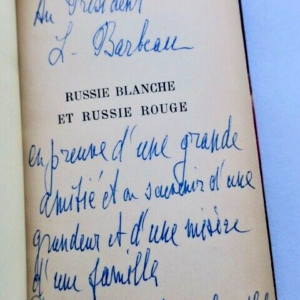 Au Président
L. Barbeau
RUSSIE BLANCHE
ET RUSSIE ROUGE
en preuve d'une grande
amitié et en souvenir d'une
grandeur et d'une misère
d'une famille